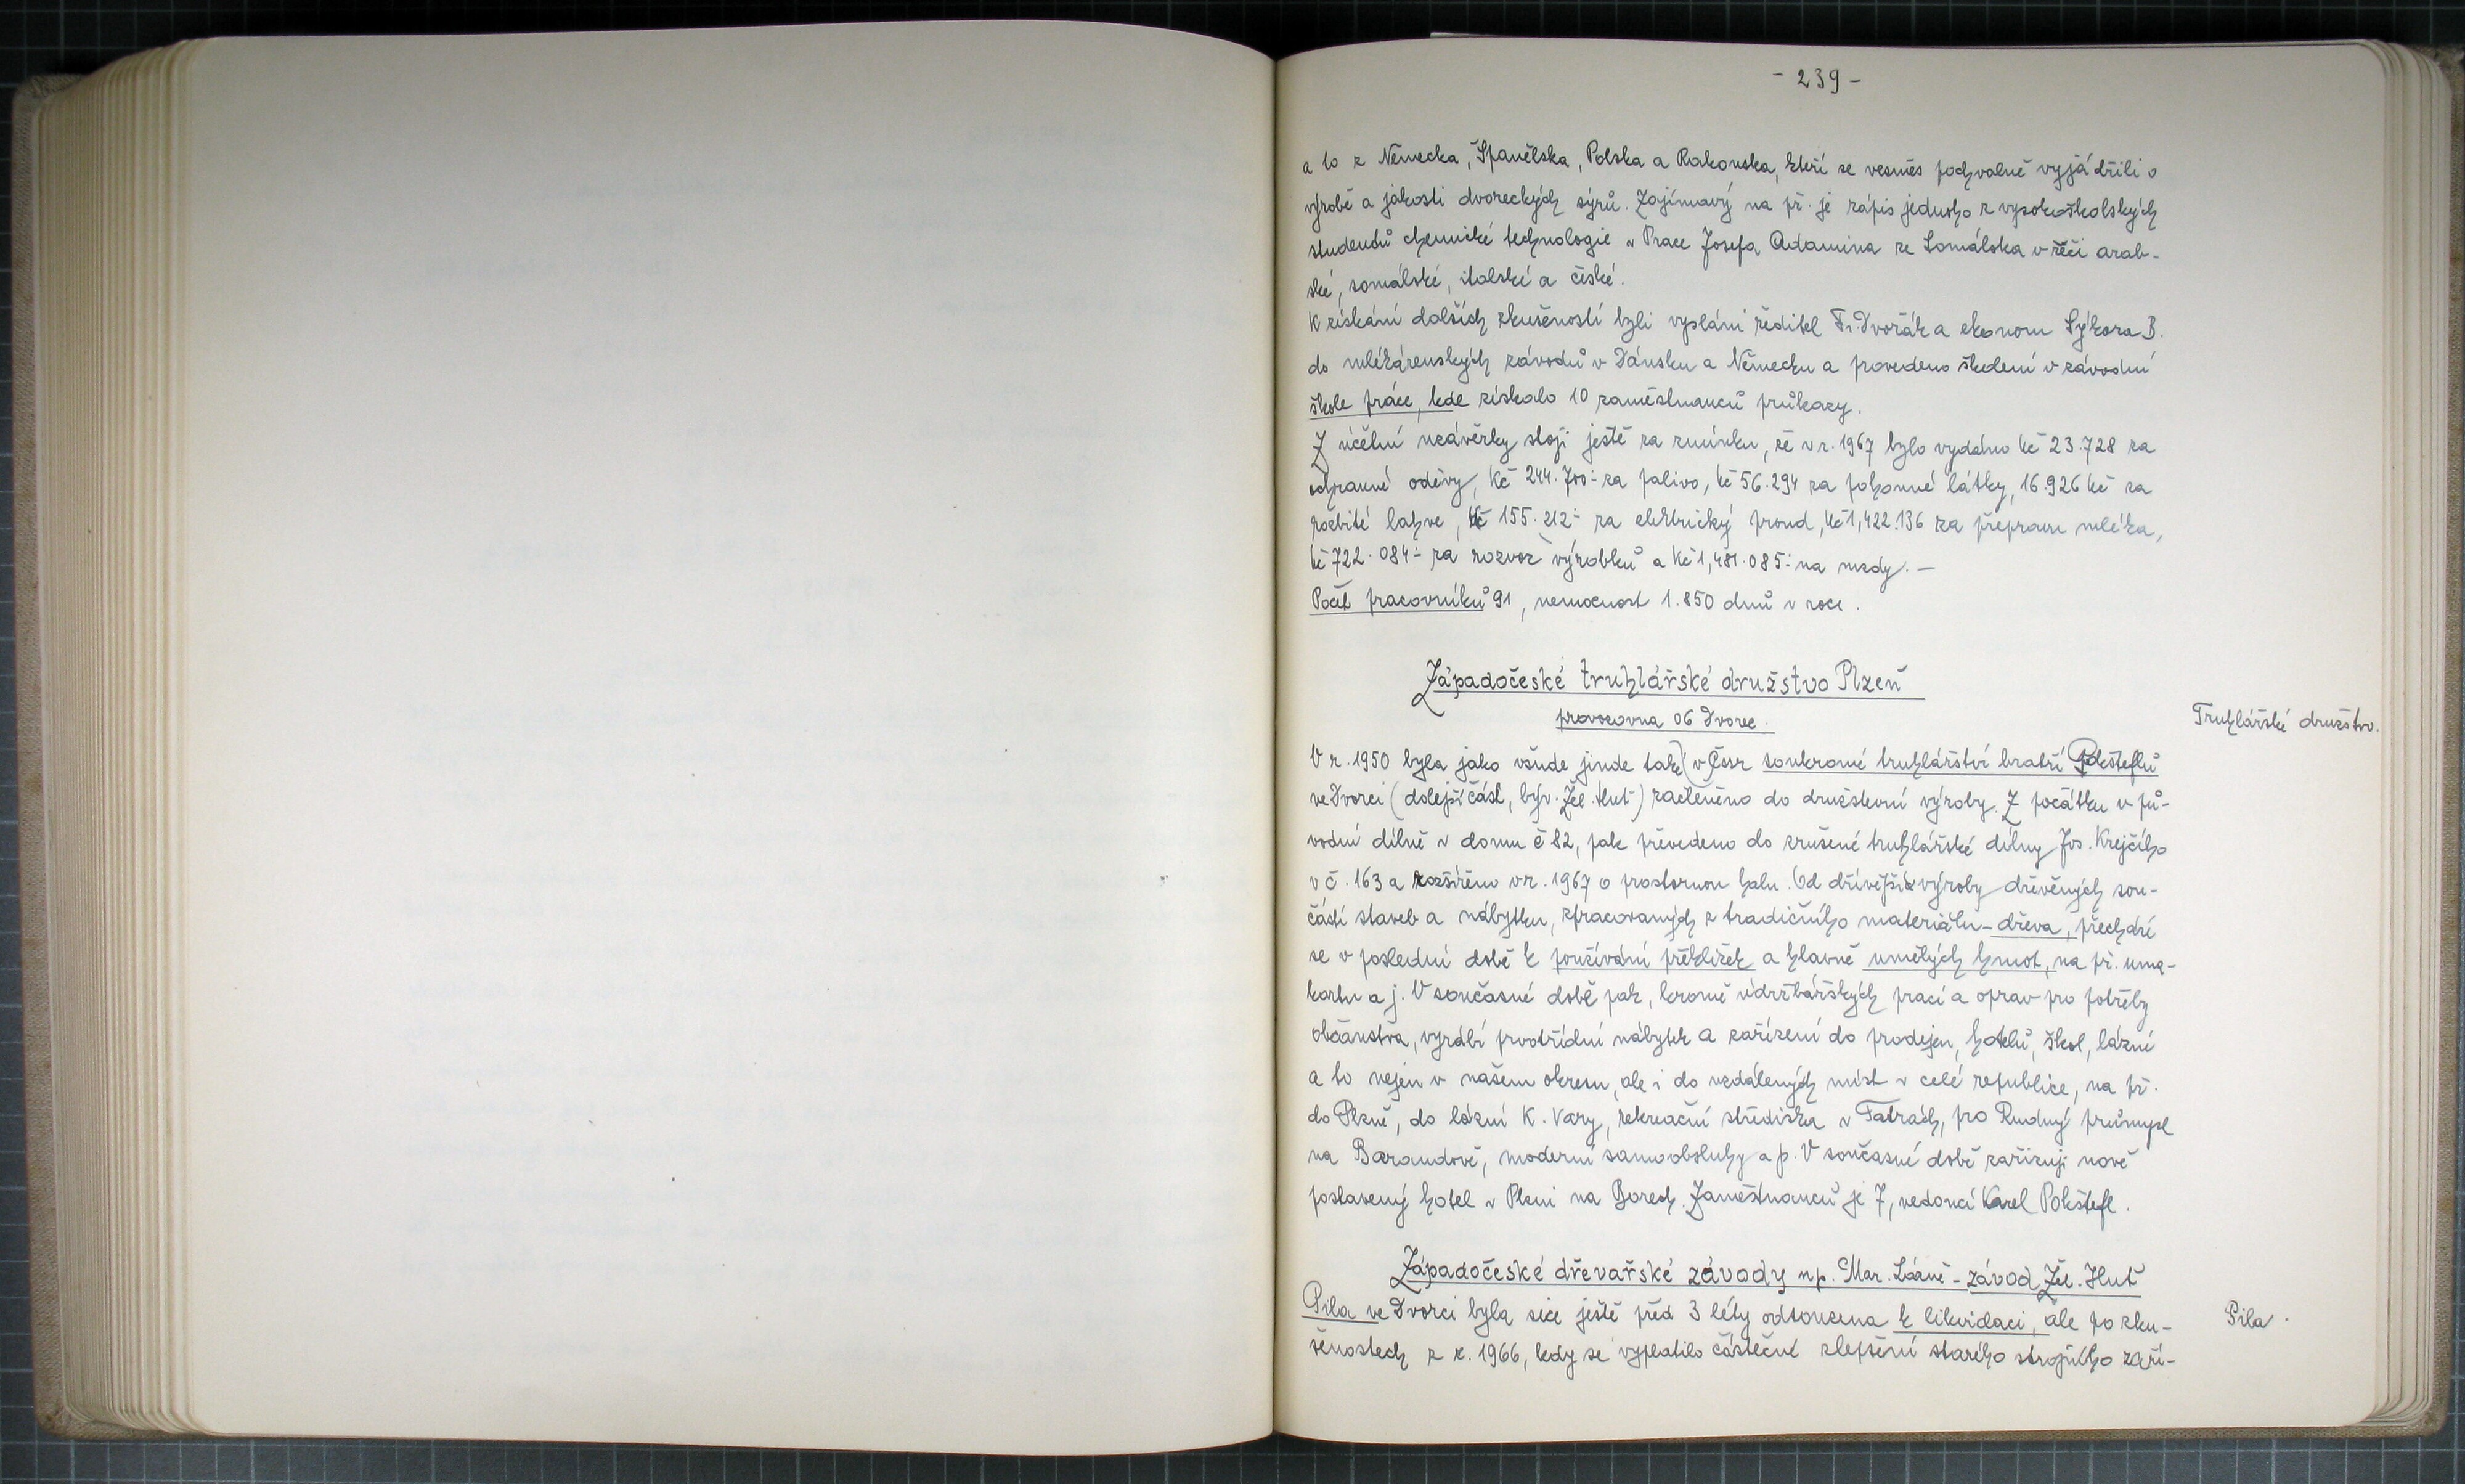 - 239 -
a to z Německa, Španělska, Polska a Rakouska, kteří se vesměs pochvalně vyjádřili o
výrobě a jakosti dvoreckých sýrů. Zajímavý na př. je zápis jednoho z vysokoškolských
studentů chemické technologie v Praze Josefa Adamina ze Somálska v řeči arab-
ské, somálské, italské a české.
K získání dalších zkušeností byli vysláni ředitel Fr. Dvořák a ekonom Sýkora B.
do mlékárenských závodů v Dánsku a Německu a provedeno školení v závodní
škole práce, kde získalo 10 zaměstnanců průkazy.
Z účetní uzávěrky stojí ještě za zmínku, že v r. 1967 bylo vydáno Kč 23.728 za
ochranné oděvy, Kč 244.700.- za palivo, Kč 56.294 za pohonné látky, 16.926 Kč za
rozbité lahve, Kč 155.212.- za elektrický proud, Kč 1,422.136 za přepravu mléka,
Kč 722.084.- za rozvoz výrobků a Kč 1,481.085.- na mzdy. -
Počet pracovníků 91, nemocnost 1.850 dnů v roce.
Západočeské truhlářské družstvo Plzeň
provozovna 06 Dvorec.
Truhlářské družstvo.
V r. 1950 byla jako všude jinde také (v Čssr soukromé truhlářství bratří Pokšteflů
ve Dvorci (dolejší část, býv. Žel. Huť) začleněno do družstevní výroby. Z počátku v pů-
vodní dílně v domu č 82, pak převedeno do zrušené truhlářské dílny Jos. Krejčího
v č. 163 a rozšířeno v r. 1967 o prostornou halu. Od dřívější výroby dřevěných sou-
částí staveb a nábytku, zpracovaných z tradičního materiálu - dřeva, přechází
se v poslední době k používání překližek a hlavně umělých hmot, na př. uma-
kartu a j. V současné době pak, kromě údržbářských prací a oprav pro potřeby
občanstva, vyrábí prvotřídní nábytek a zařízení do prodejen, hotelů, škol, lázní
a to nejen v našem okresu, ale i do vzdálených míst v celé republice, na př.
do Plzně, do lázní K. Vary, rekreační střediska v Tatrách, pro Rudný průmysl
na Barandově, moderní samoobsluhy a p. V současné době zařizují nově
postavený hotel v Plzni na Borech. Zaměstnanců je 7, vedoucí Karel Pokštefl.
Západočeské dřevařské závody n.p. Mar. Lázně - závod Žel. Huť
Pila ve Dvorci byla sice ještě před 3 léty odsouzena k likvidaci, ale po zku-
Pila.
šenostech z r. 1966, kdy se vyplatilo částečné zlepšení starého strojního zaří-